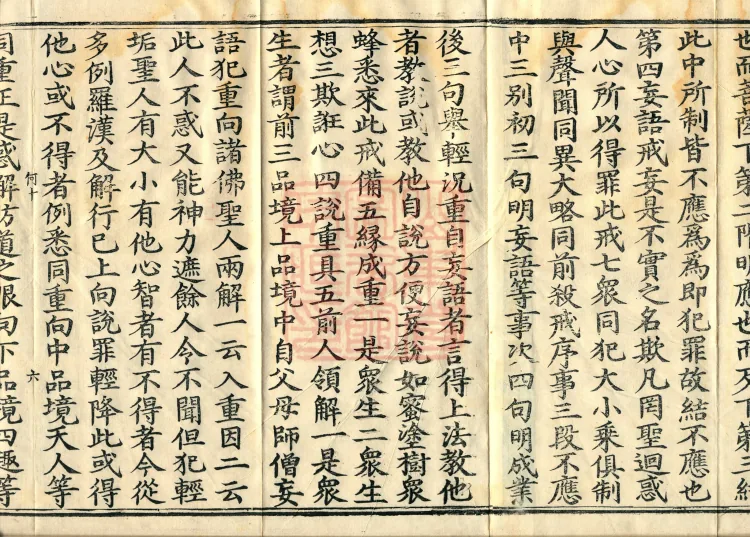 也而菩薩下第二階明應也而反下第三結
此中所制皆不應爲爲即犯罪故結不應也
第四妄語戒妄是不實之名欺凡罔聖迴惑
人心所以得罪此戒七衆同犯大小乘俱制
與聲聞同異大略同前殺戒序事三段不應
中三別初三句明妄語等事次四句明成業
後三句舉輕況重自妄語者言得上法教他
者教說或教他自說方便妄說如蜜塗樹衆
蜂悉來此戒備五緣成重一是衆生二衆生
想三欺誑心四說重具五前人領解一是衆
生者謂前三品境上品境中自父母師僧妄
語犯重向諸佛聖人兩解一云入重因二云
此人不惑又能神力遮餘人令不聞但犯輕
垢聖人有大小有他心智者有不得者今從
多例羅漢及解行已上向說罪輕降此或得
他心或不得者例悉同重向中品境天人等
何十
六
同重正是惑解妨道之限向下品境四趣等